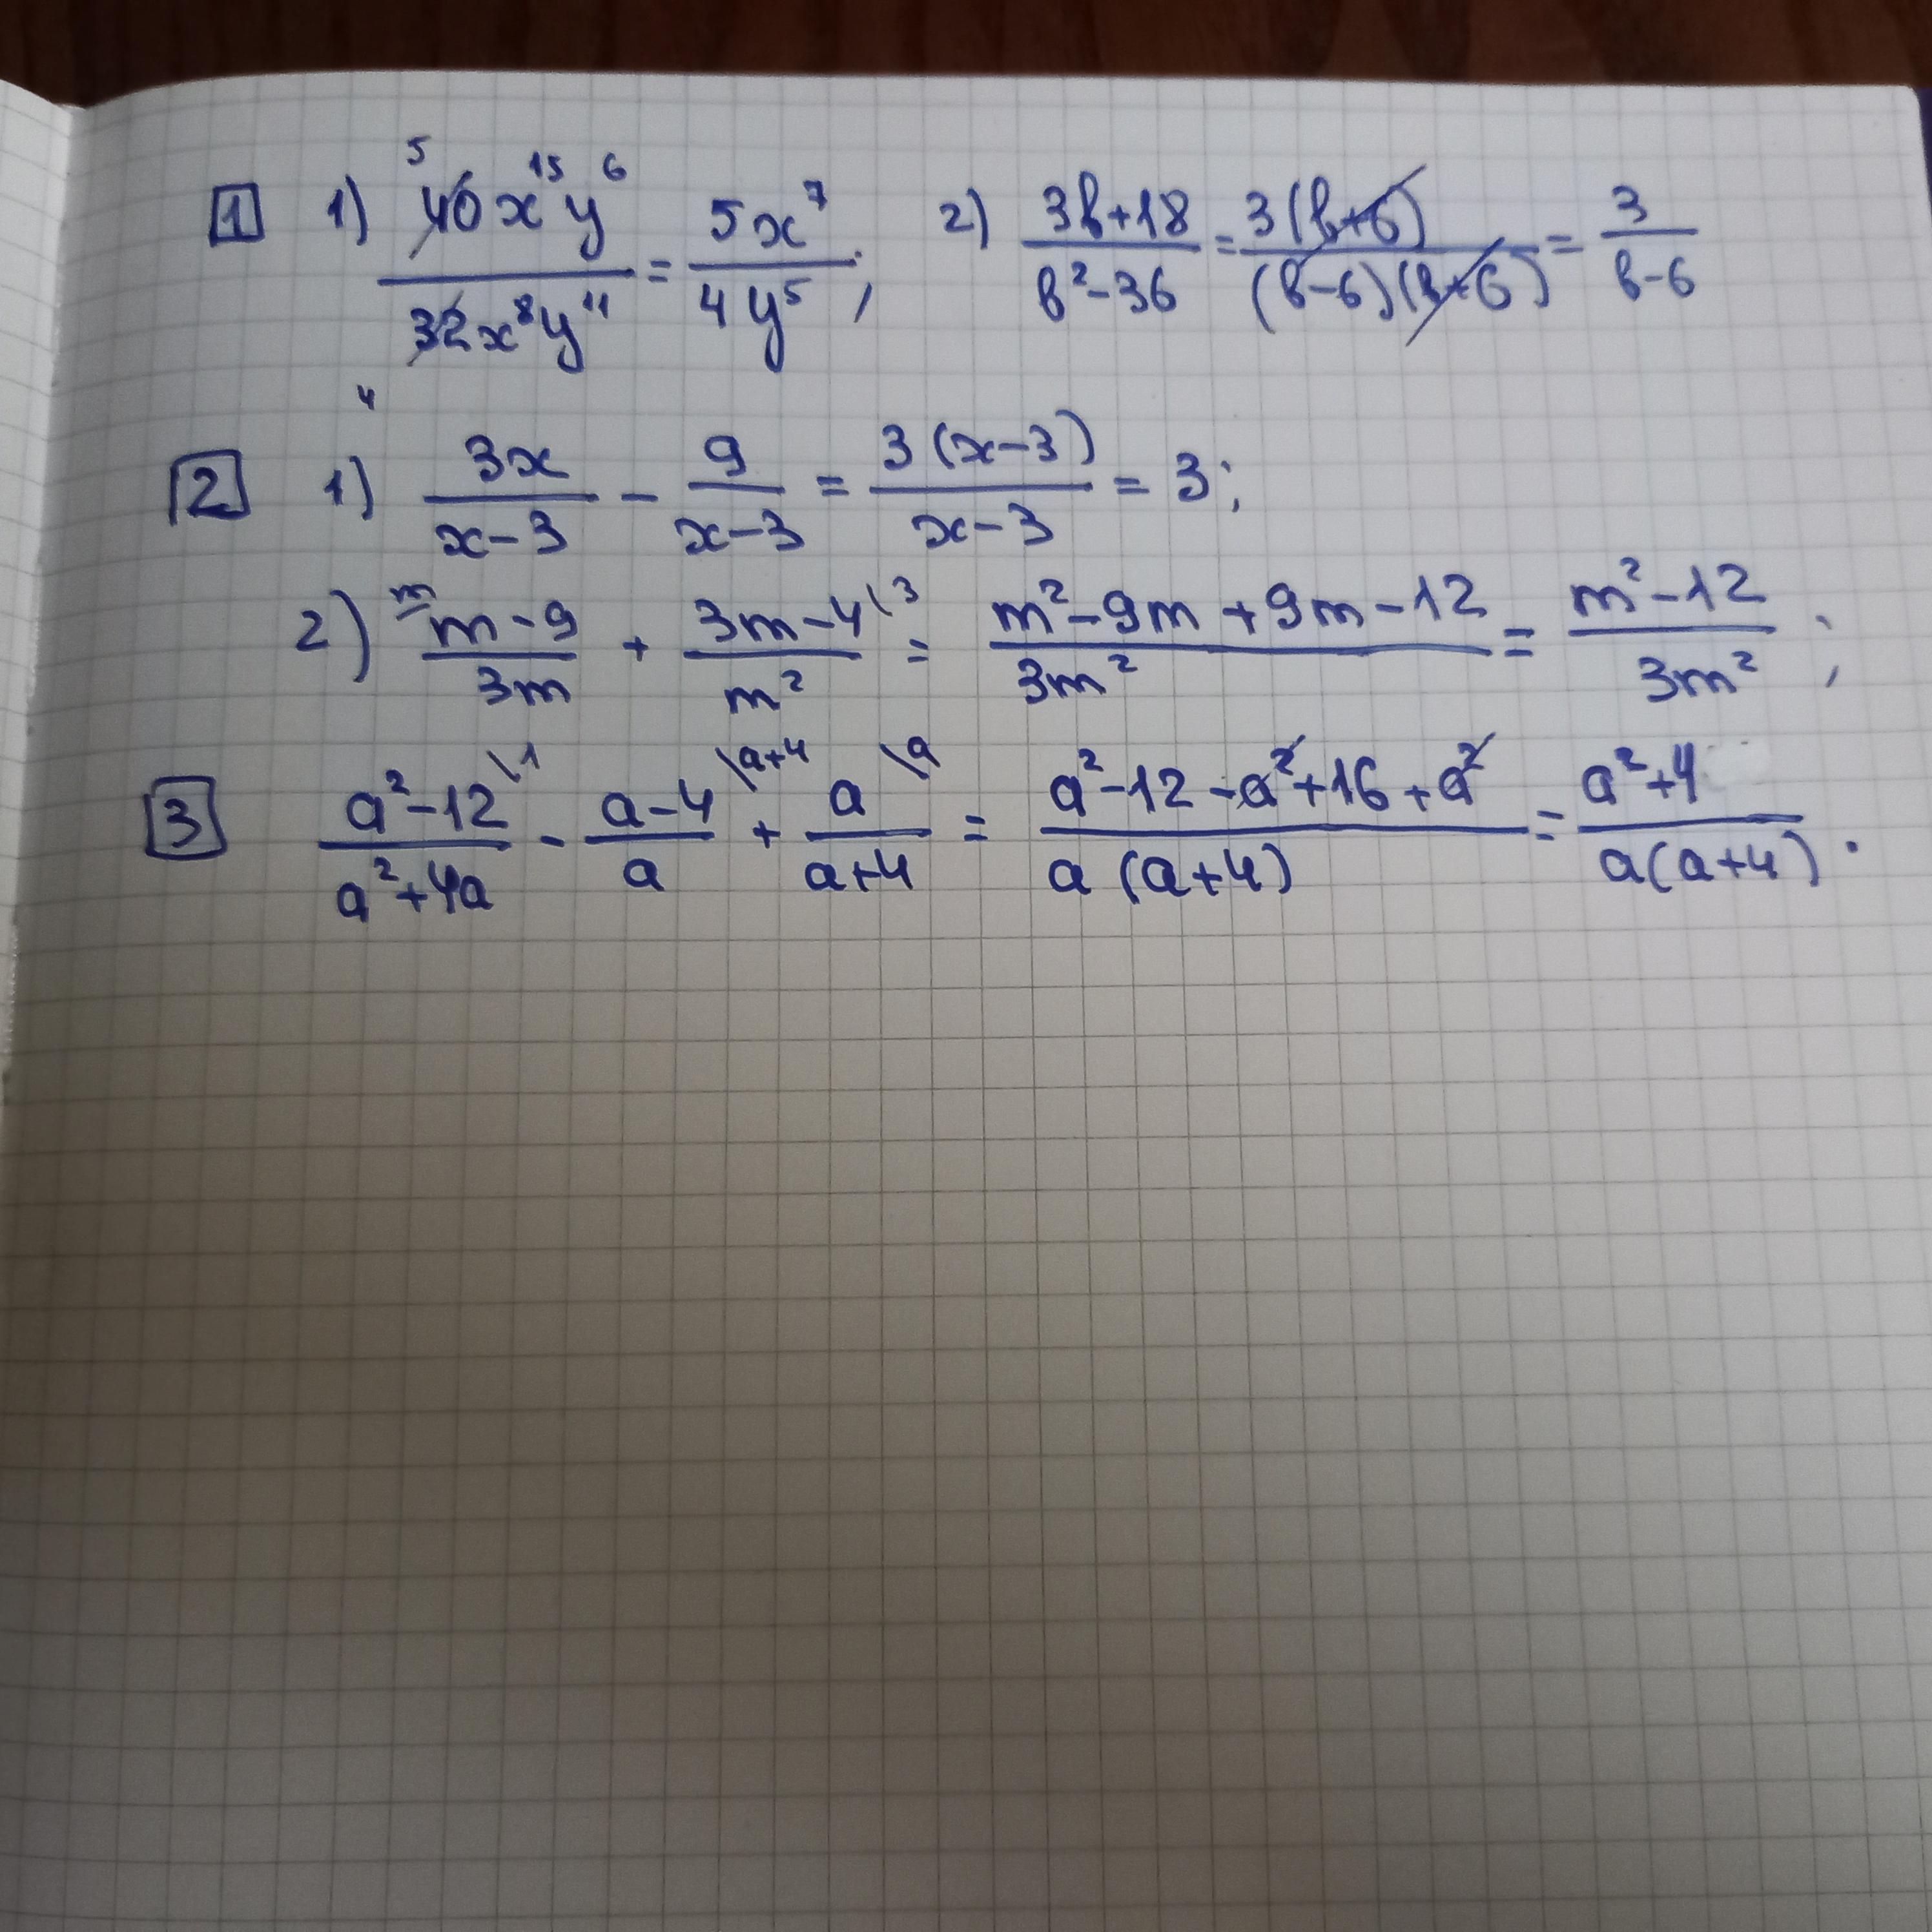 1 1) 40x¹⁵y⁶ / 32x⁸y¹¹ = 5x⁷ / 4y⁵; 2) 3b+18 / b²-36 = 3(b+6) / (b-6)(b+6) = 3 / b-6
2 1) 3x / x-3 - 9 / x-3 = 3(x-3) / x-3 = 3;
2) m-9 / 3m + 3m-4 \3 / m² = m²-9m+9m-12 / 3m² = m²-12 / 3m²;
3 a²-12 \1 / a²+4a - a-4 \a+4 / a + a \a / a+4 = a²-12-a²+16+a² / a(a+4) = a²+4 / a(a+4).